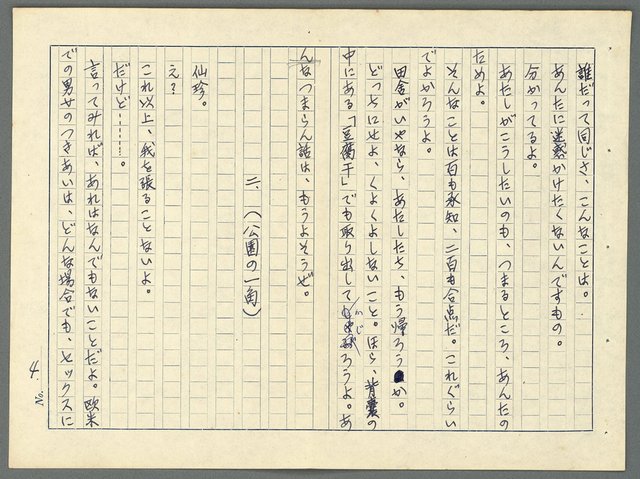 誰だって同じさ、こんなことは。
あんたに迷惑かけたくないんですもの。
分かってるよ。
あたしがこうしたいのも、つまるところ、あんたの
ためよ。
そんなことは百も承知、二百も合点だ。これぐらい
でよかろうよ。
田舎がいやなら、あたしたち、もう帰ろうか。
どっちにせよ、くよくよしないこと。ほら、背嚢の
中にある「豆腐干」でも取り出してかじろうよ。あ
んなつまらん話は、もうよそうぜ。
二、(公園の一角)
仙珍。
え?
これ以上、我を張ることないよ。
だけど………。
言ってみれば、あれはなんでもないことだよ。欧米
での男女のつきあいは、どんな場合でも、セックスに
No. 4